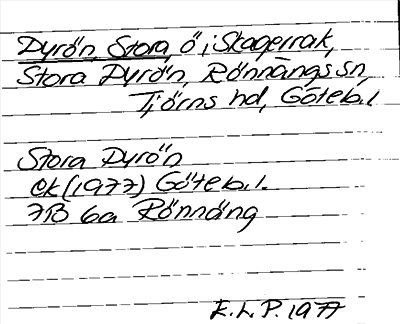 Dyrön, Stora, ö i Skagerrak,
Stora Dyrön, Rönnängs sn,
Tjörns hd, Göteb. l.
Stora Dyrön
ek (1977) Göteb. l.
7B 6a Rönnäng
E. L. P. 1977